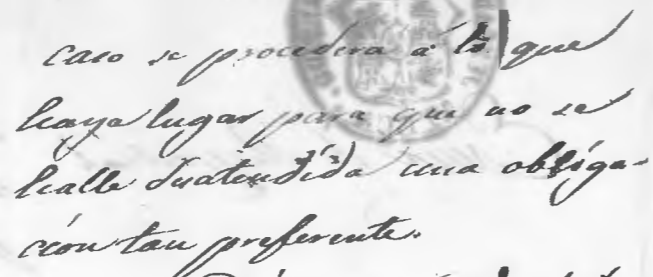 caso se procedera á lo que
haya lugar para que no se
halle desatendida una obliga-
cion tan preferente.